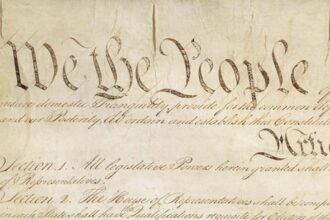 We the People
insure domestic Tranquility, provide for the common
and our Posterity, do ordain and establish this Constitu
Artic
Section. 1. All legislative Powers herein granted shall
of Representatives.
Section. 2. The House of Representatives shall be comp
in each State shall have the Qualifications requisite for Electors